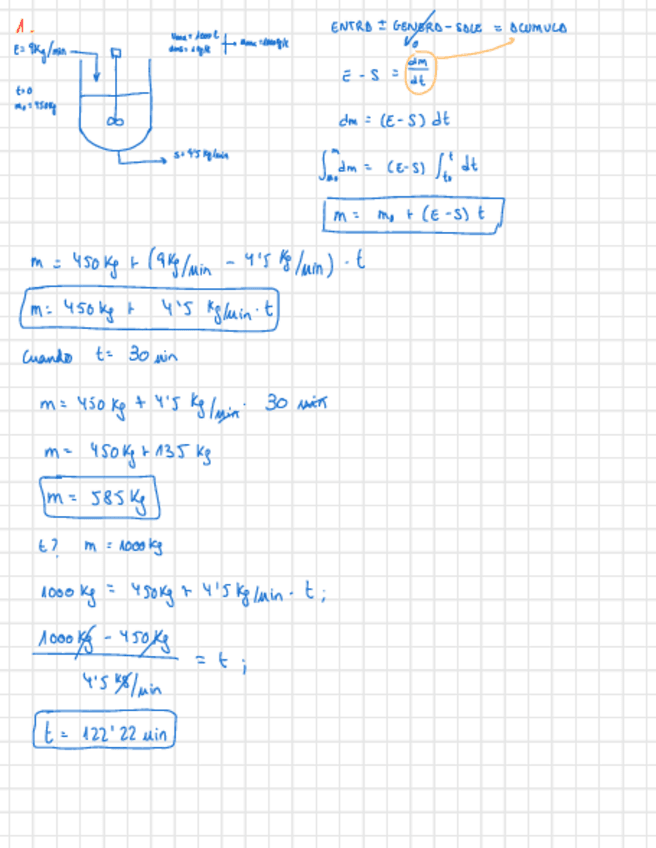 1.
E = 9 Kg/min
t=0
m₀ = 450 Kg
S = 4'5 Kg/min
ENTRO ± GENERO - SALE = ACUMULO
0
E - S = dm/dt
dm = (E-S) dt
∫ₘ₀ᵐ dm = (E-S) ∫ₜ₀ᵗ dt
m = m₀ + (E-S) t
m = 450 Kg + (9 Kg/min - 4'5 Kg/min) · t
m = 450 Kg + 4'5 Kg/min · t
Cuando t = 30 min
m = 450 Kg + 4'5 Kg/min · 30 min
m = 450 Kg + 135 Kg
m = 585 Kg
t? m = 1000 Kg
1000 Kg = 450 Kg + 4'5 Kg/min · t ;
1000 Kg - 450 Kg
= t ;
4'5 Kg/min
t = 122'22 min